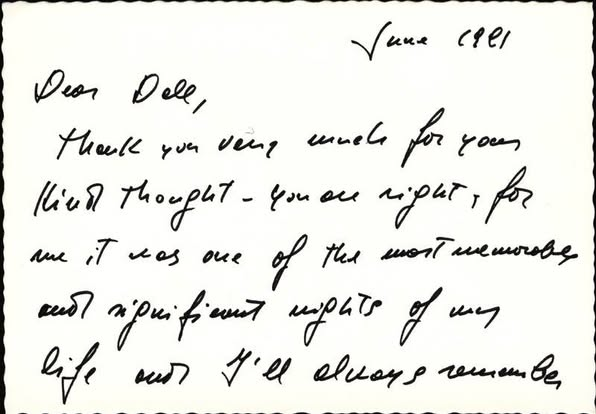 June 1991
Dear Dale,
Thank you very much for your
kind thought - you are right, for
me it was one of the most memorable
and significant nights of my
life and I'll always remember